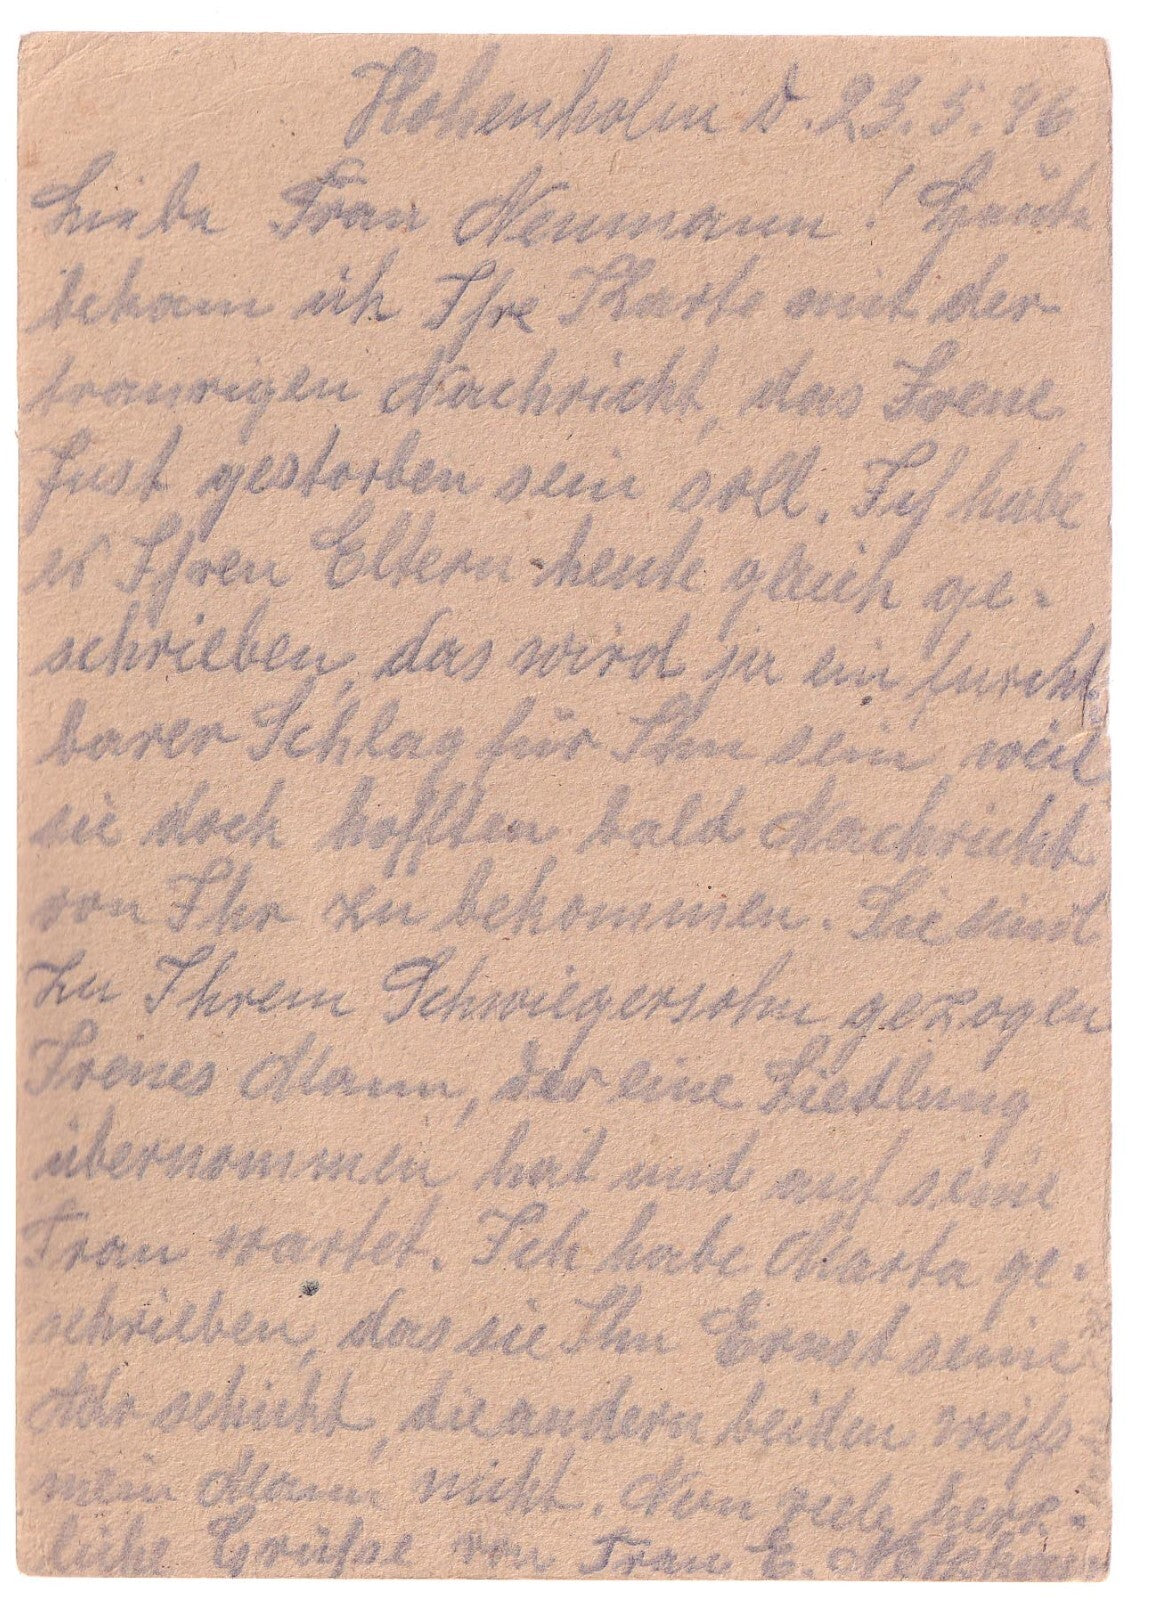 Hohenholm d. 23.5.46
Liebe Frau Neumann! Heute
bekam ich Ihre Karte mit der
traurigen Nachricht, das Irene
Just gestorben sein soll. Ich habe
es Ihren Eltern heute gleich ge-
schrieben, das wird ja ein furcht
barer Schlag für Ihn sein, weil
sie doch hofften bald Nachricht
von Ihr zu bekommen. Sie sind
zu Ihrem Schwiegersohn gezogen
Irenes Mann, der eine Siedlung
übernommen hat und auf seine
Frau wartet. Ich habe Marta ge-
schrieben, das sie Ihn Ernst seine
Adr schickt, die andern beiden weiß
mein Mann nicht. Nun viele herz-
liche Grüße von Frau E.